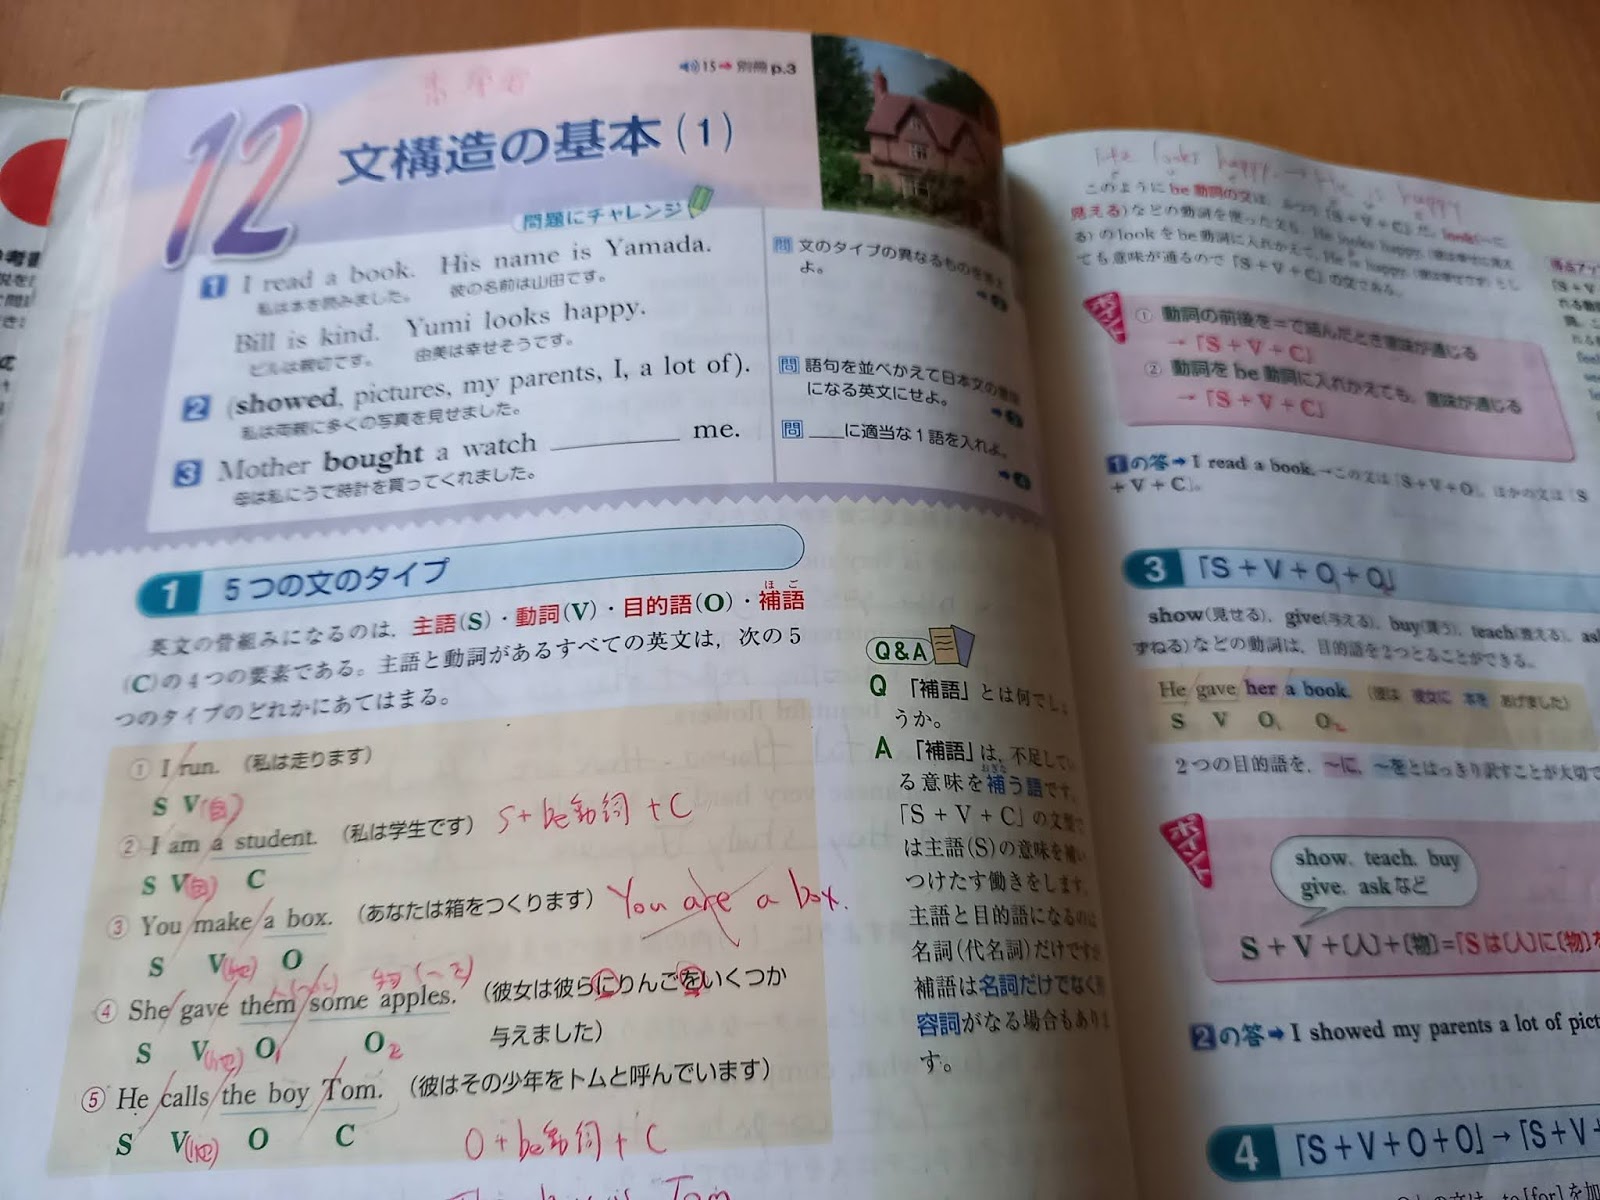 15→別冊 p.3
12 文構造の基本(1)
問題にチャレンジ
1 I read a book. His name is Yamada.
私は本を読みました。 彼の名前は山田です。
Bill is kind. Yumi looks happy.
ビルは親切です。 由美は幸せそうです。
2 (showed, pictures, my parents, I, a lot of).
私は両親に多くの写真を見せました。
3 Mother bought a watch ______ me.
母は私にうで時計を買ってくれました。
問 文のタイプの異なるものを
よ。
問 語句を並べかえて日本文の意味
になる英文にせよ。
問 ___に適当な1語を入れよ。
1 5つの文のタイプ
英文の骨組みになるのは, 主語(S)・動詞(V)・目的語(O)・補語
ほご
(C)の4つの要素である。主語と動詞があるすべての英文は, 次の5
つのタイプのどれかにあてはまる。
① I run. (私は走ります)
S V(自)
② I am a student. (私は学生です) S+be動詞+C
S V(自) C
③ You make a box. (あなたは箱をつくります) You are a box.
S V(他) O
④ She gave them some apples. (彼女は彼らにりんごをいくつか
与えました)
S V(他) O1 O2
⑤ He calls the boy Tom. (彼はその少年をトムと呼んでいます)
S V(他) O C O+be動詞+C
is Tom
Q&A
Q 「補語」とは何でしょ
うか。
A 「補語」は, 不足してい
る意味を補う語です。
おぎな
「S+V+C」の文型で
は主語(S)の意味を補い
つけたす働きをします。
主語と目的語になるのは
名詞(代名詞)だけですが
補語は名詞だけでなく形
容詞がなる場合もありま
す。
He looks happy. → He is happy
このようにbe動詞の文は,
見える)などの動詞を使った文も, He looks happy.
る)のlookをbe動詞に入れかえて, He is happy.
ても意味が通るので「S+V+C」の文である。
ポイント
① 動詞の前後を=で結んだとき意味が通じる
→「S+V+C」
② 動詞をbe動詞に入れかえても, 意味が通じる
→「S+V+C」
1の答→I read a book.→この文は「S+V+O」, ほかの文は「S
+V+C」。
3 「S+V+O1+O2」
show(見せる), give(与える), buy(買う), teach(教える), as
ずねる)などの動詞は, 目的語を2つとることができる。
He gave her a book. (彼は 彼女に 本を あげました)
S V O1 O2
2つの目的語を, ~に, ~をとはっきり訳すことが大切で
ポイント
show, teach, buy
give, askなど
S+V+〔人〕+〔物〕=「Sは〔人〕に〔物〕を
2の答→I showed my parents a lot of pict
4 「S+V+O+O」→「S+V+